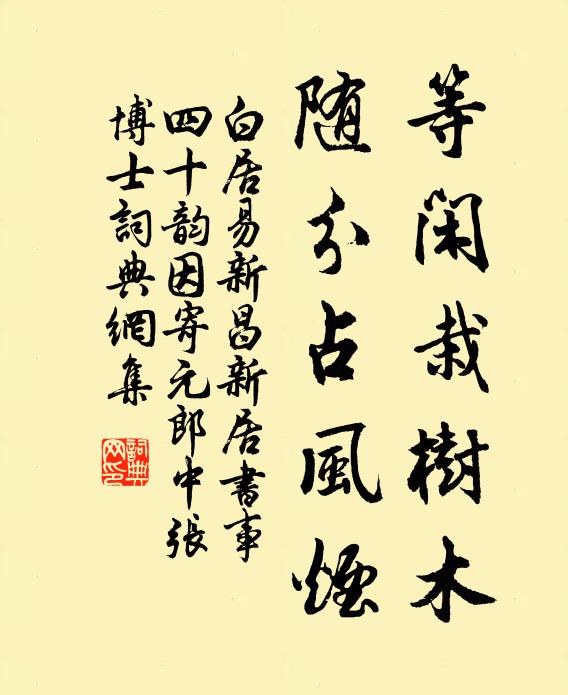 等闲栽樹木
随分占風煙
白居易新昌新居書事
四十韵因寄元郎中張
博士詞典網集
詞典
网印